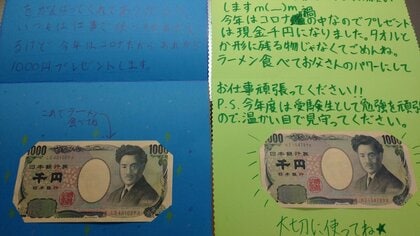 1000円プレゼントします。
これでラーメン
食べてね
1000
1000
日本銀行券
千円
日本銀行
しますm(__)m
今年はコロナ禍の中なのでプレゼント
は現金千円になりました。タオルと
か形に残る物じゃなくてごめんね。
ラーメン食べてお父さんのパワーにして
お仕事頑張ってください!!
P.S.今年度は受験生として勉強を頑張る
ので、温かい目で見守ってください。
1000
1000
日本銀行券
千円
日本銀行
大切に使ってね☆